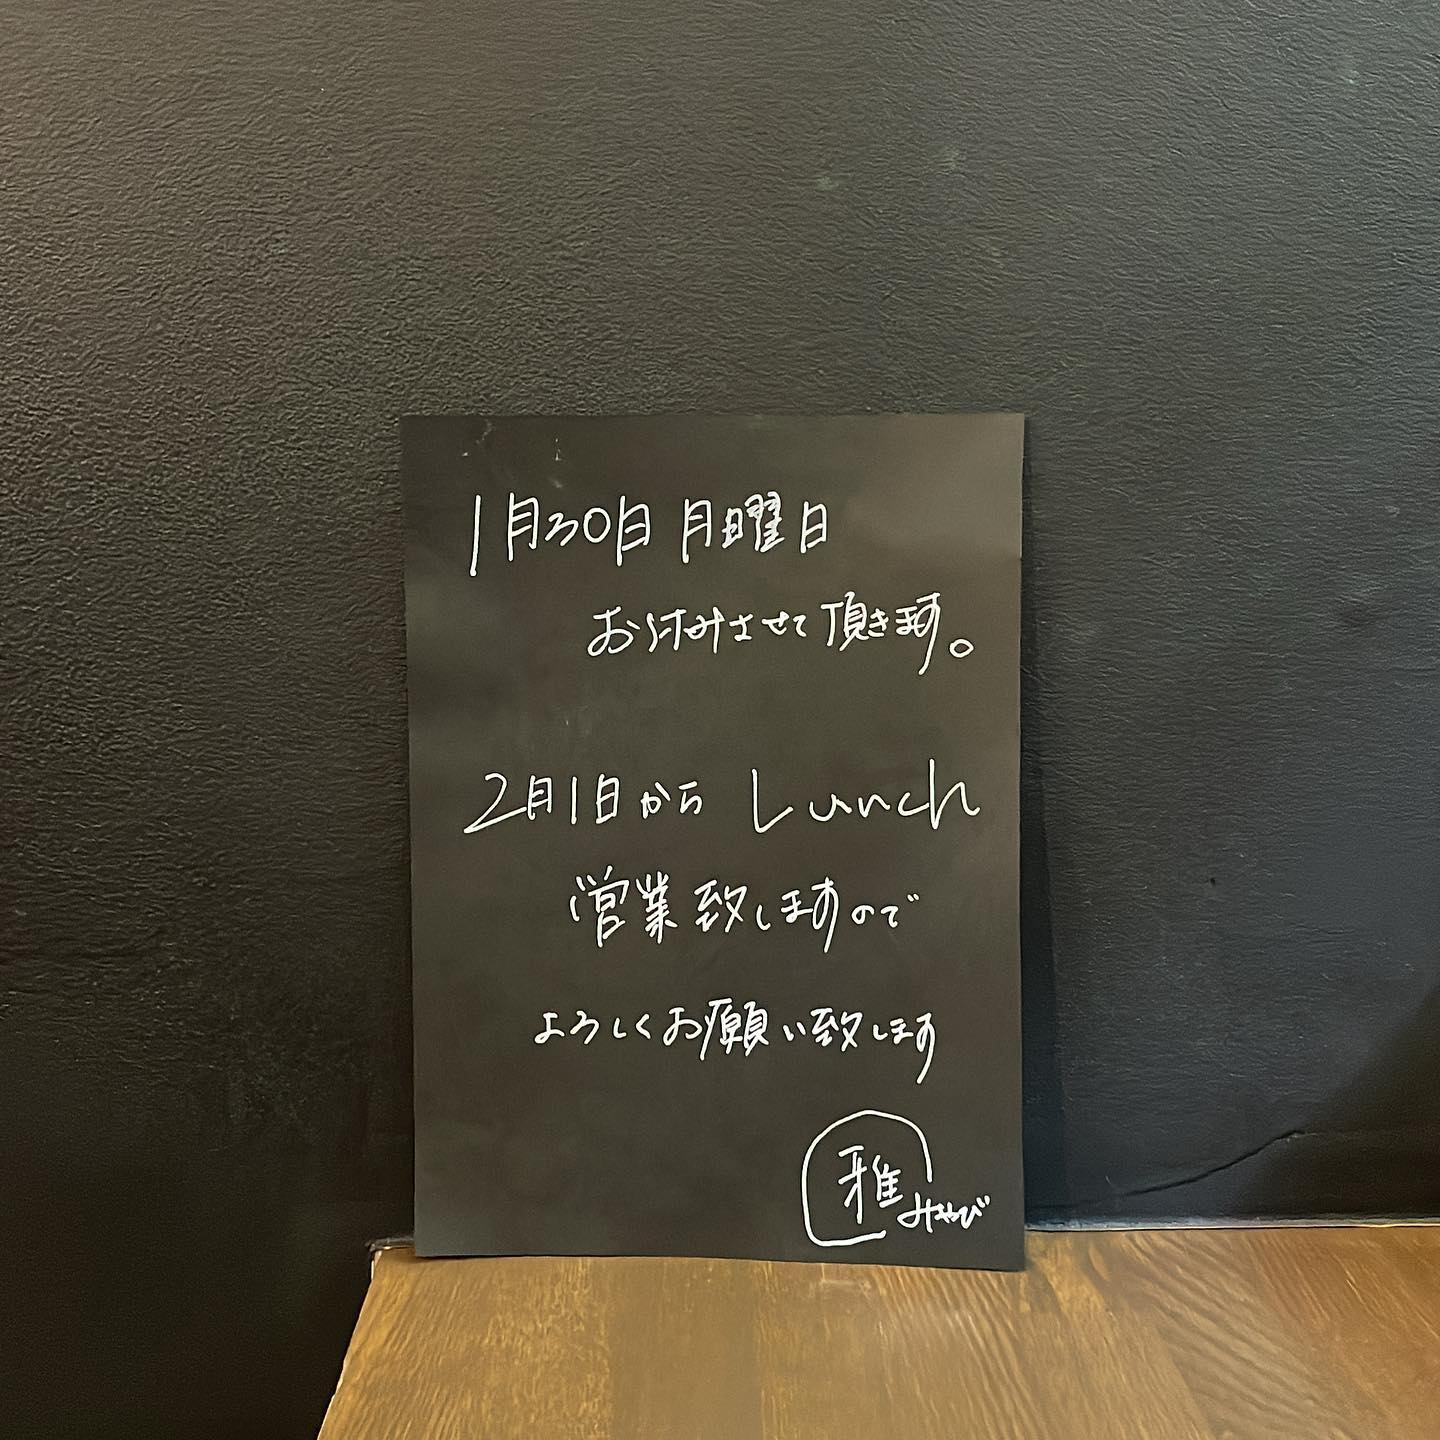 1月30日 月曜日
お休みさせて頂きます。
2月1日から Lunch
営業致しますので
よろしくお願い致します
雅 みやび